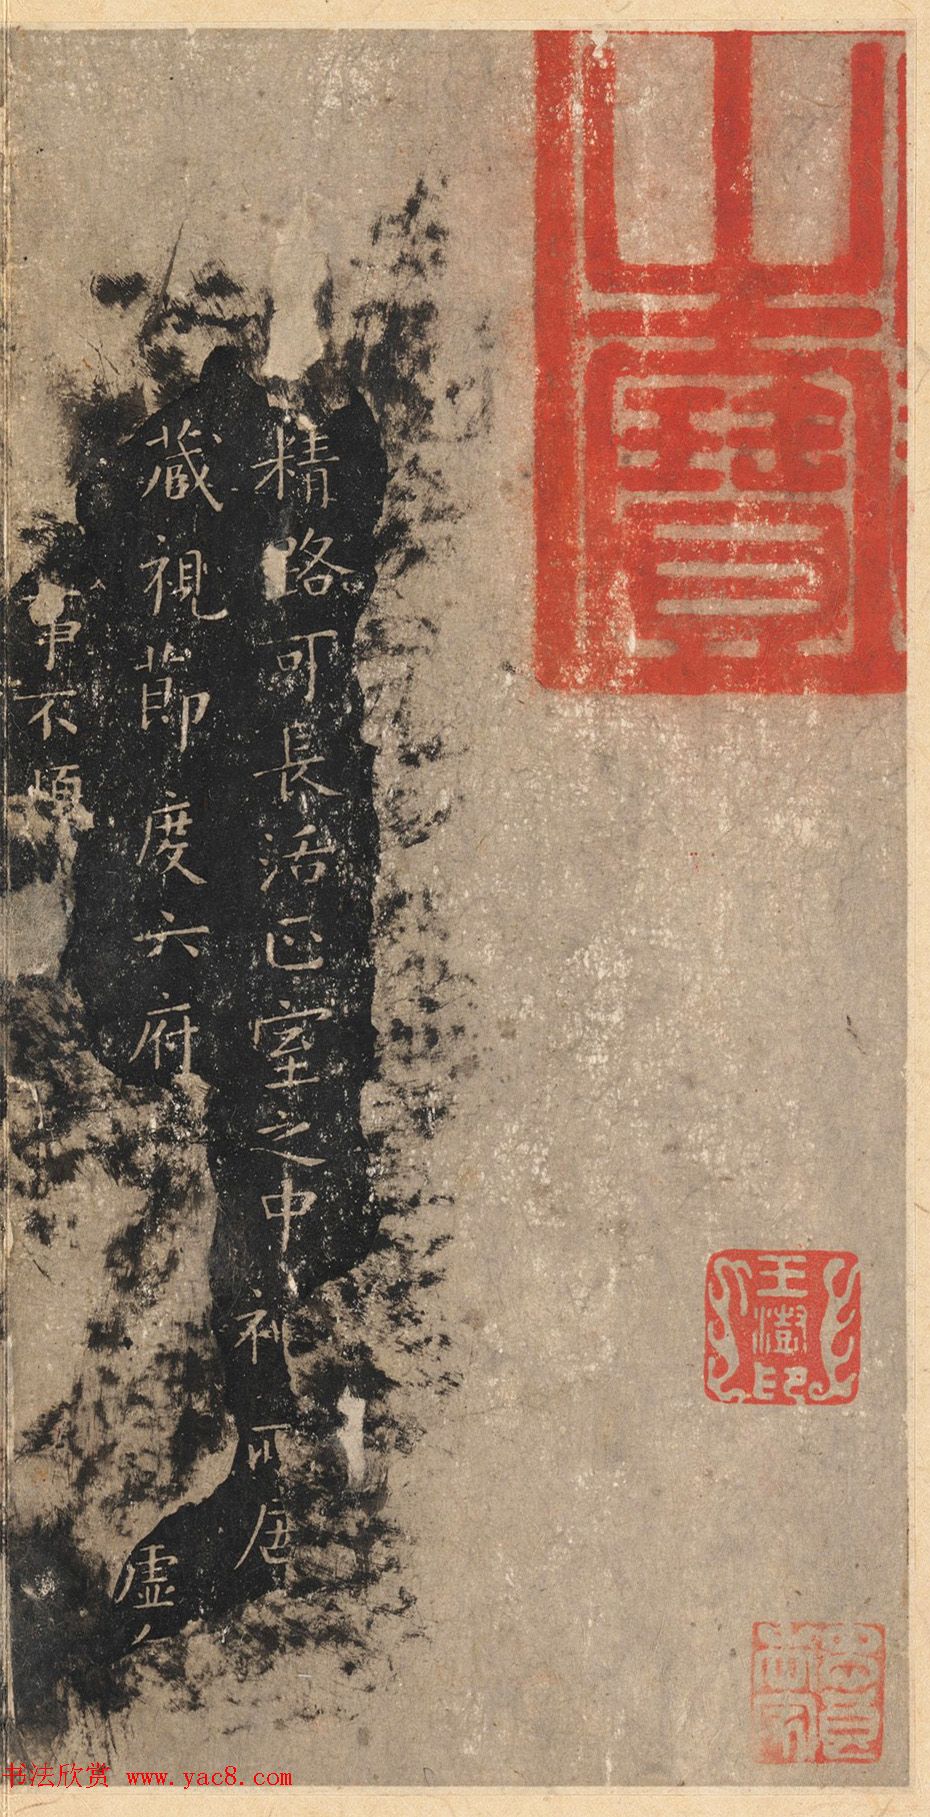 精路可長活正室之中神所居
藏視節度六府
虛
事不煩
王澍印
书法欣赏 www.yac8.com